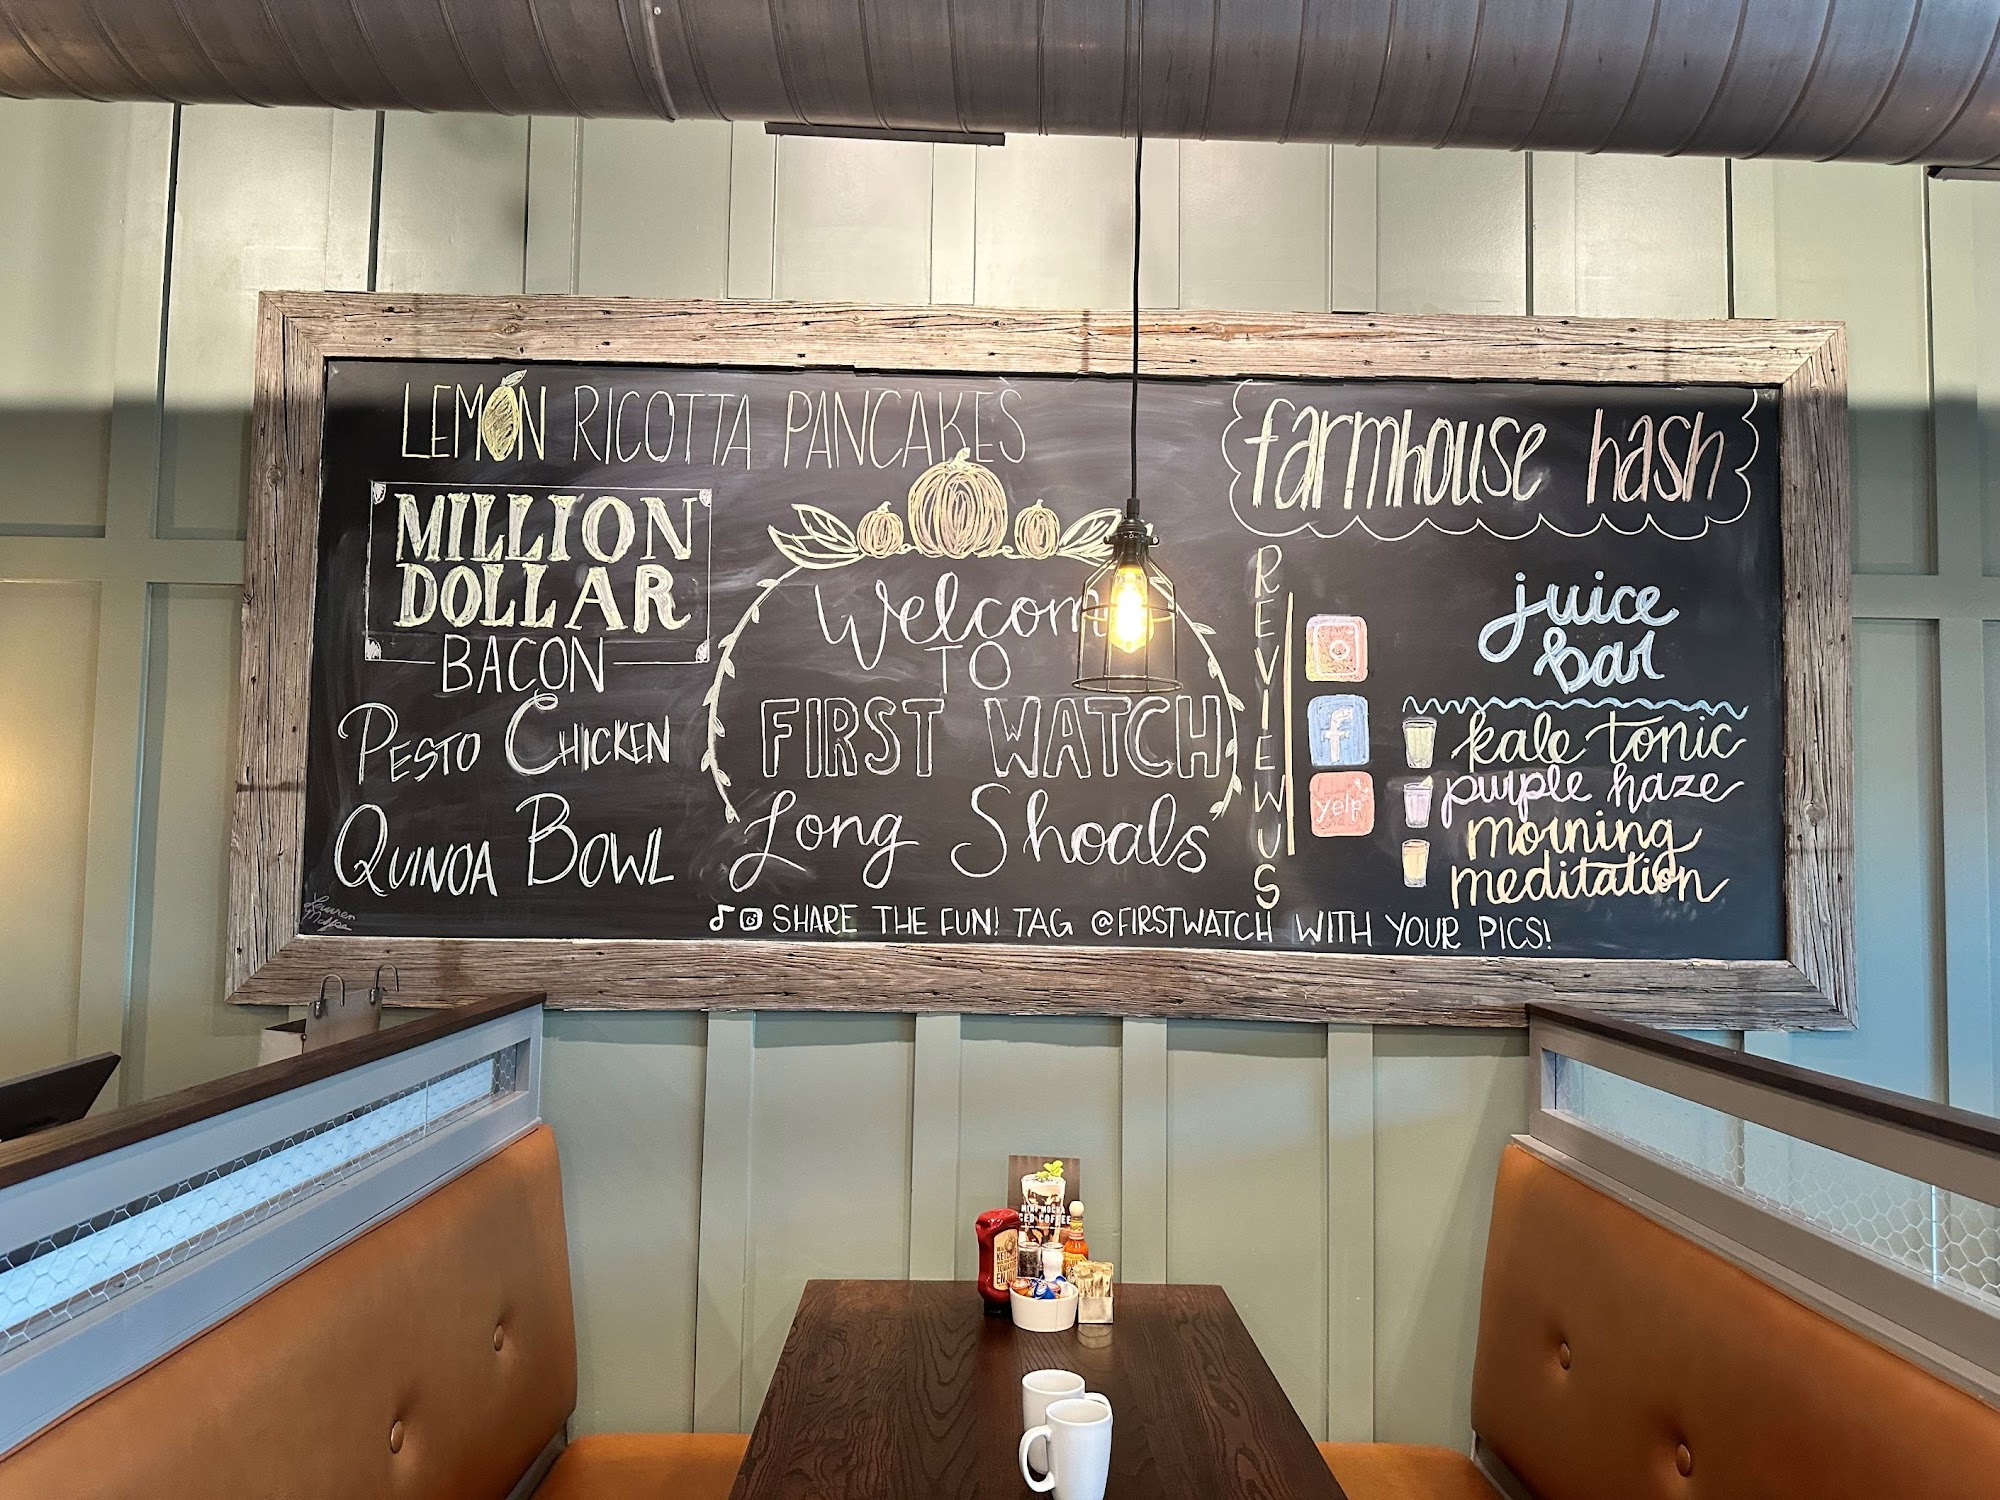 LEMON RICOTTA PANCAKES
MILLION
DOLLAR
BACON
PESTO CHICKEN
QUINOA BOWL
Lauren
Welcom
TO
FIRST WATCH
Long Shoals
farmhouse hash
REVIEW US
f
yelp
juice
bar
kale tonic
purple haze
morning
meditation
SHARE THE FUN! TAG @FIRSTWATCH WITH YOUR PICS!
MOCHA
ICED COFFEE
KETCHUP